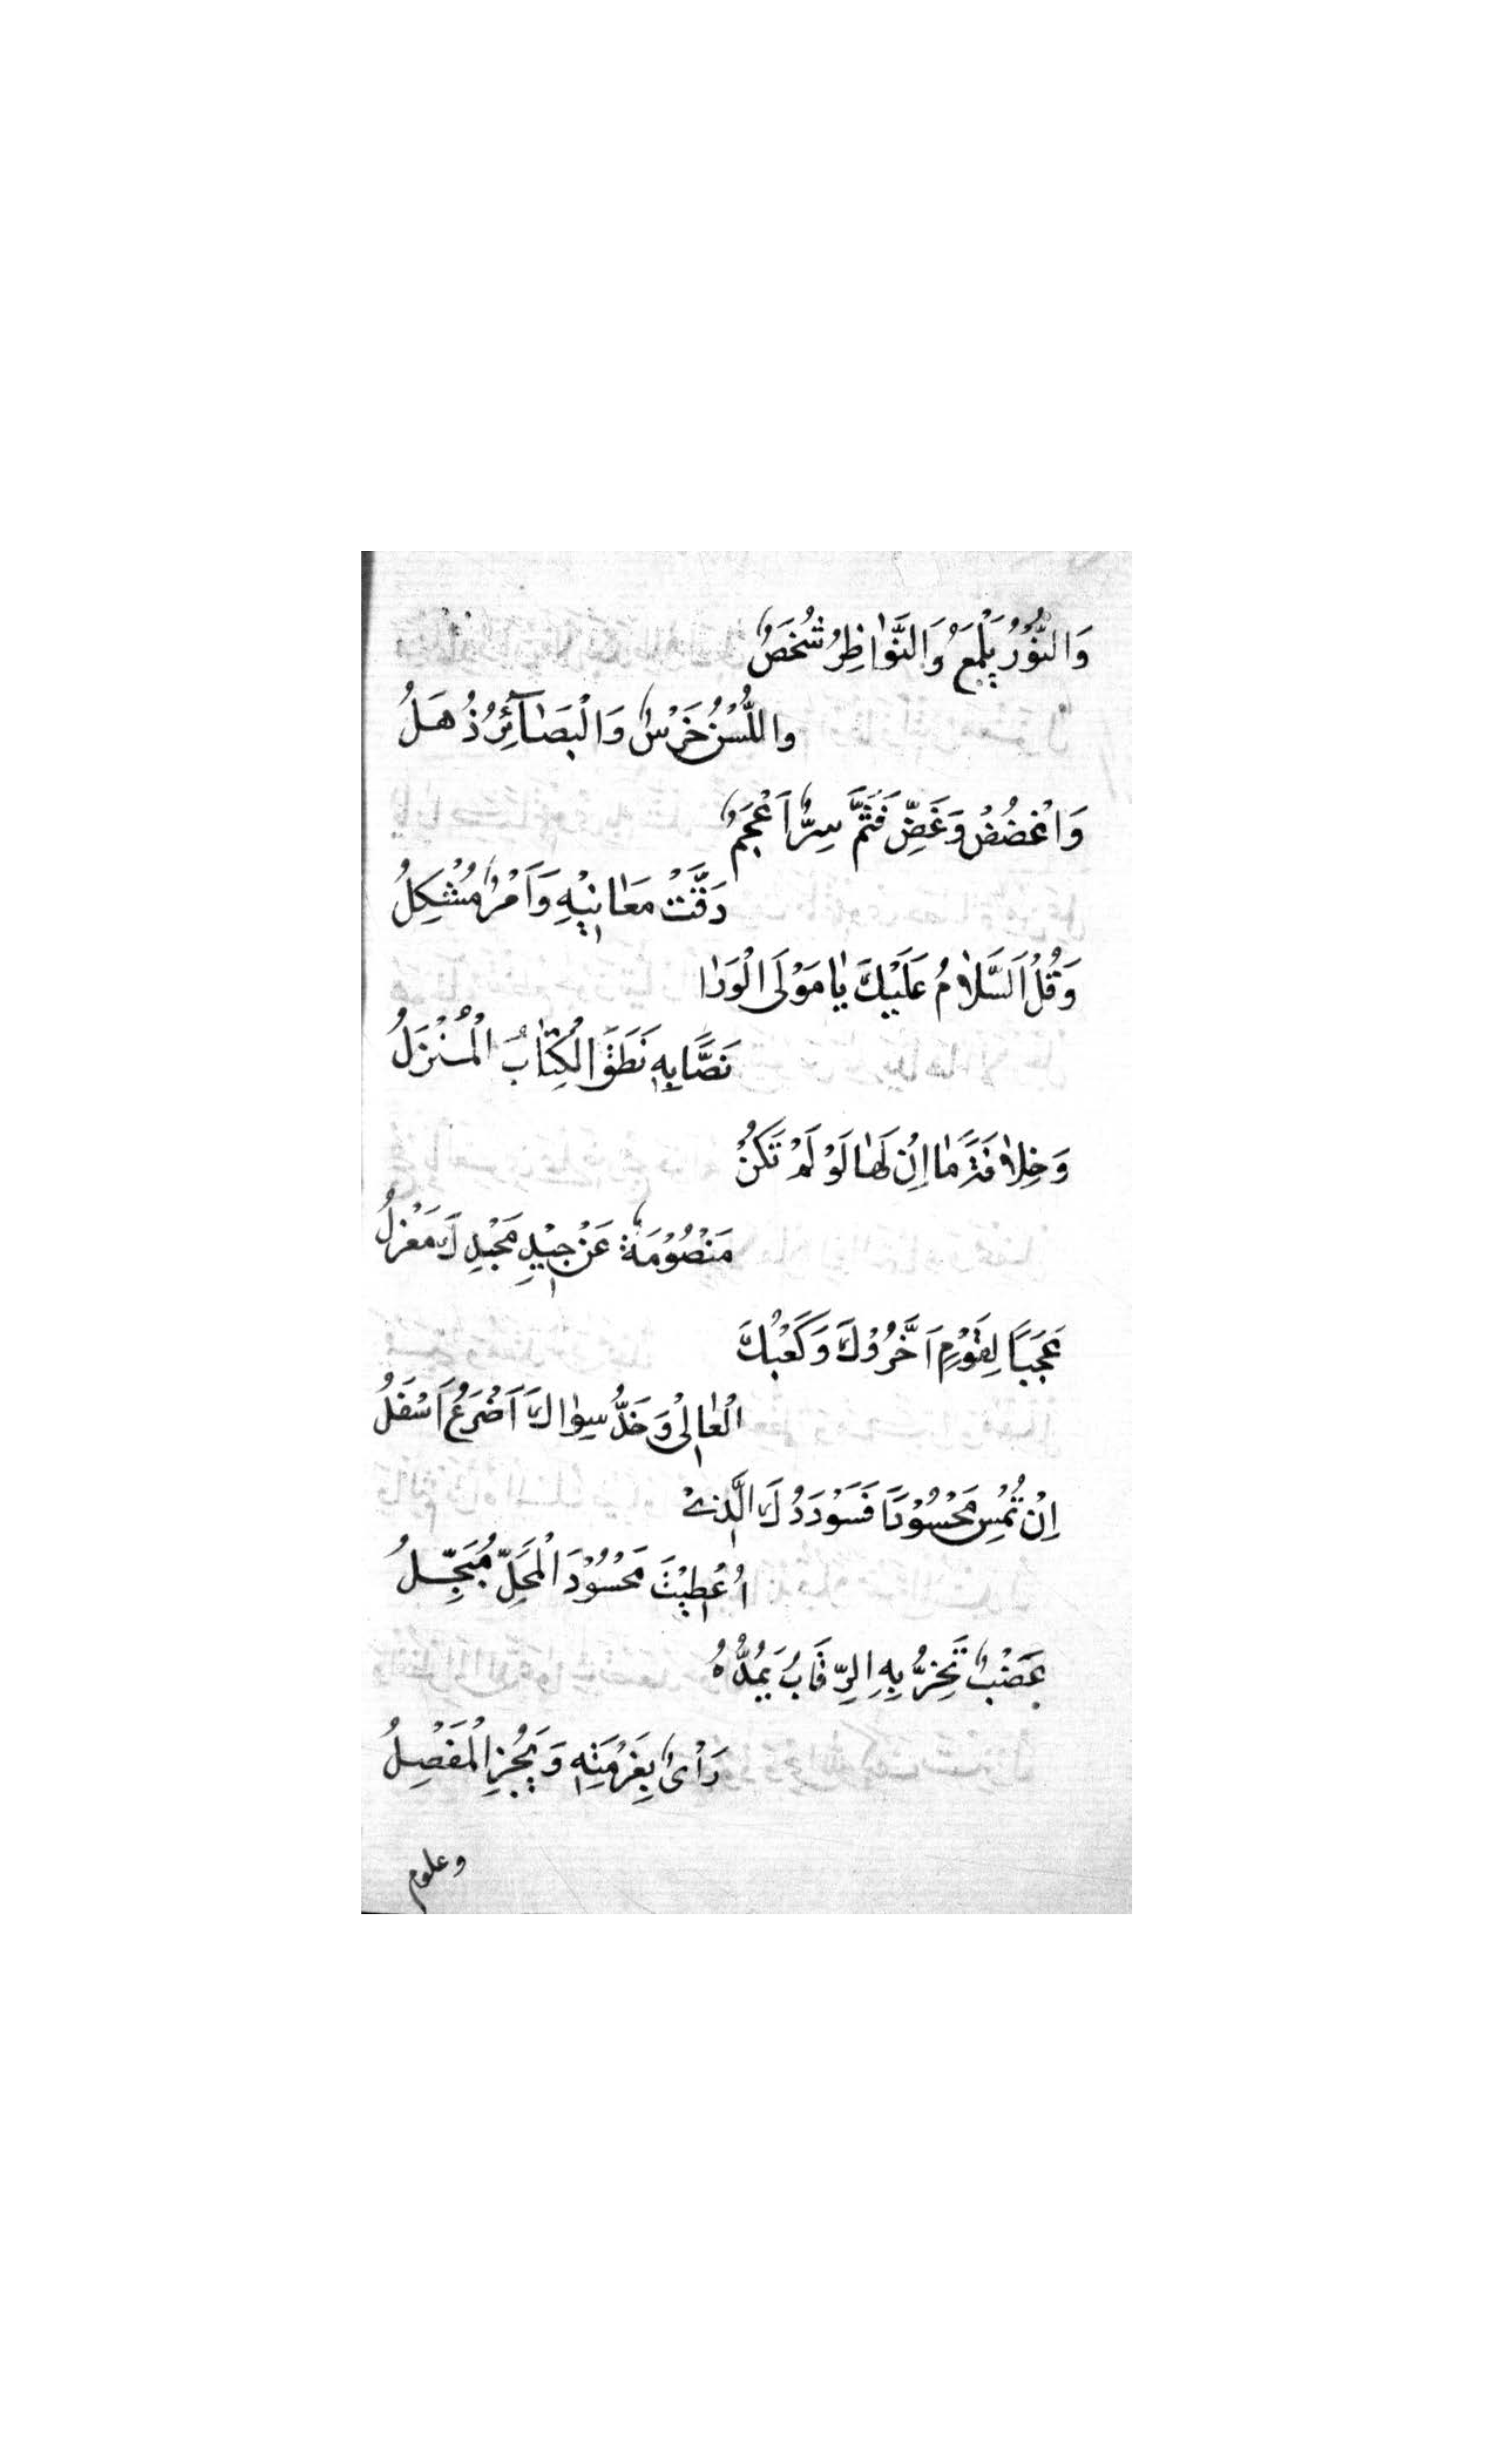 وَالنُّوْرُ يَلْمَعُ وَالنَّوٰاظِرُ شُخَصٌ
واللُّسْنُ خَرْسٌ وَالْبَصٰآئِرُ ذُهَلُ
وَاغْضُضْ وَغَضِّ فَثَمَّ سِرٌّ اَعْجَمٌ
دَقَّتْ مَعٰانِيْهِ وَاَمْرٌ مُشْكِلُ
وَقُلْ اَلسَّلٰامُ عَلَيْكَ يٰا مَوْلَى الْوَرٰا
نَصًّا بِهٖ نَطَقَ الْكِتٰابُ الْمُنْزَلُ
وَخِلٰافَةً مٰا اِنْ لَهٰا لَوْ لَمْ تَكُنْ
مَنْصُوْمَةٌ عَنْ جِيْدِ مَجْدِكَ مَعْزِلُ
عَجَبًا لِقَوْمٍ اَخَّرُوْكَ وَكَعْبُكَ
الْعٰالِىْ وَخَدُّ سِوٰاكَ اَضْرَعُ اَسْفَلُ
اِنْ تُمْسِ مَحْسُوْدًا فَسَوْدَدُكَ الَّذِىْ
اُعْطِيْتَ مَحْسُوْدَ الْمَحَلِّ مُبَجِّلُ
عَضْبٌ تَحِزُّ بِهِ الرِّقَابُ يَمُدُّهُ
رَاْىٌ بِعَزْمَتِهٖ وَيُجْزِ الْمَفْصِلُ
وعلوم